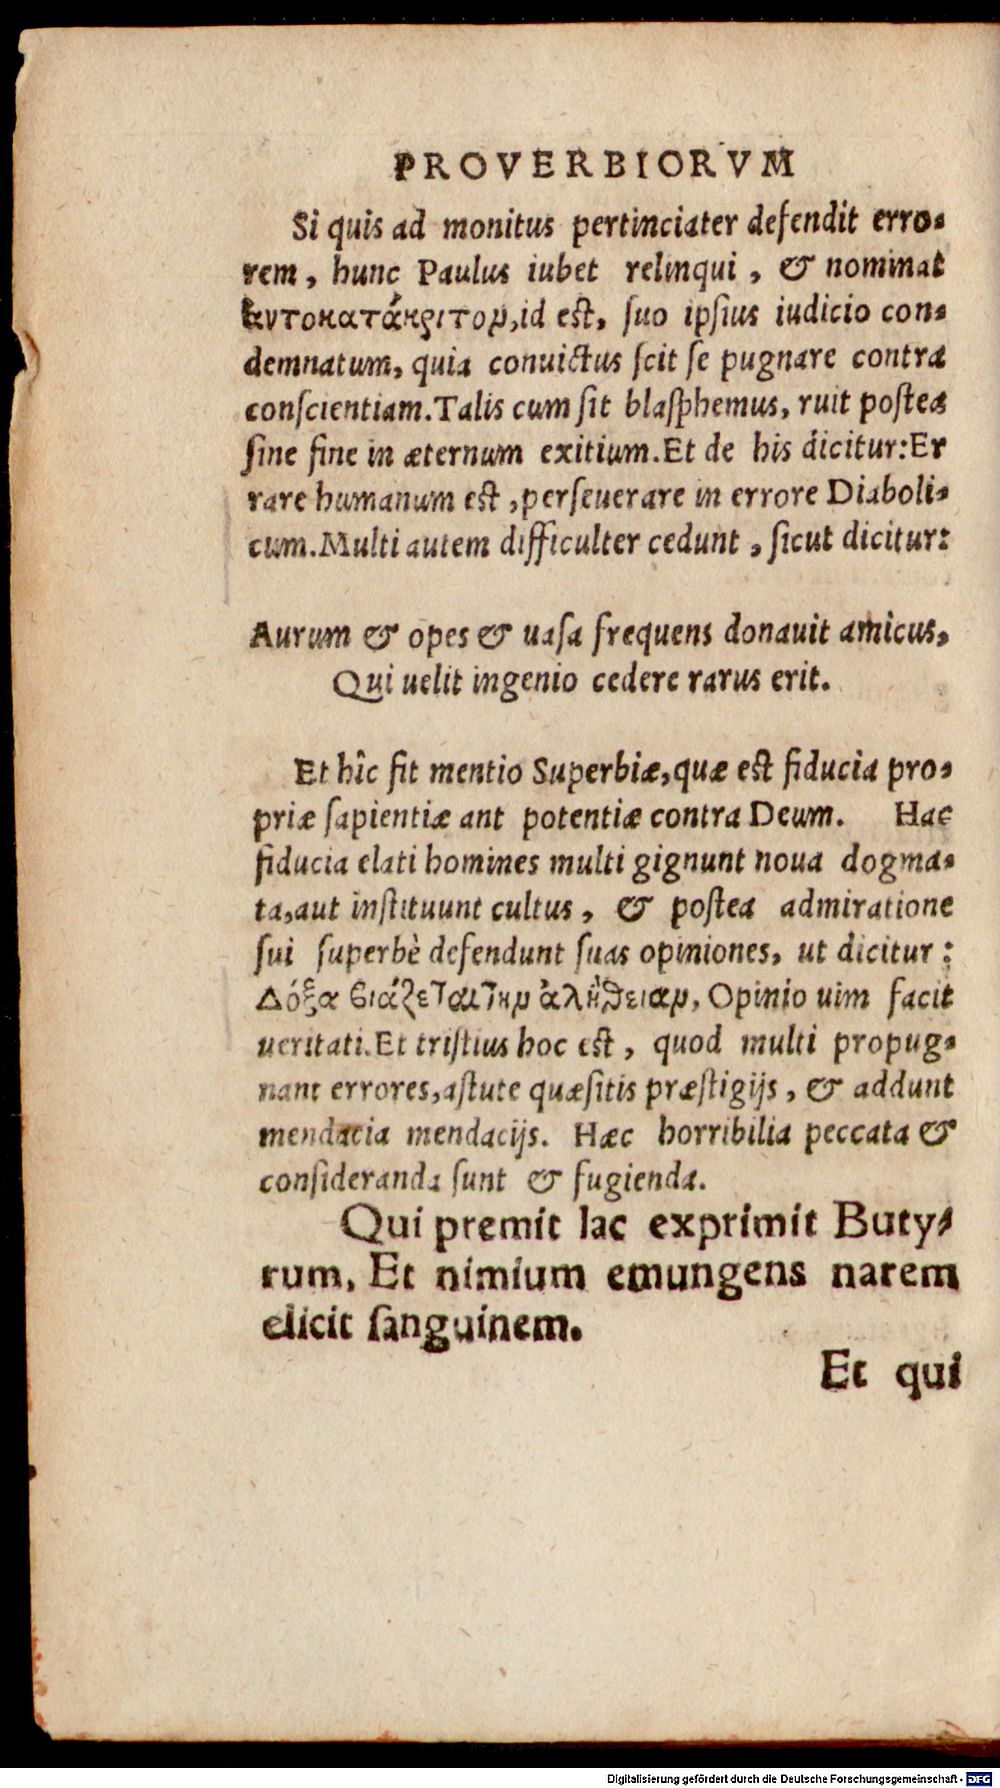 PROVERBIORVM
Si quis ad monitus pertinciater defendit erro-
rem, hunc Paulus iubet relinqui, & nominat
ἀυτοκατάκριτον, id est, suo ipsius iudicio con-
demnatum, quia conuictus scit se pugnare contra
conscientiam. Talis cum sit blasphemus, ruit postea
sine fine in æternum exitium. Et de his dicitur: Er
rare humanum est, perseuerare in errore Diaboli-
cum. Multi autem difficulter cedunt, sicut dicitur:
Aurum & opes & uasa frequens donauit amicus,
Qui uelit ingenio cedere rarus erit.
Et hîc fit mentio Superbiæ, quæ est fiducia pro-
priæ sapientiæ ant potentiæ contra Deum. Hac
fiducia elati homines multi gignunt noua dogma-
ta, aut instituunt cultus, & postea admiratione
sui superbè defendunt suas opiniones, ut dicitur:
Δόξα βιάζεται τὴν ἀλήθειαν, Opinio uim facit
ueritati. Et tristius hoc est, quod multi propug-
nant errores, astute quæsitis præstigijs, & addunt
mendacia mendacijs. Hæc horribilia peccata &
consideranda sunt & fugienda.
Qui premit lac exprimit Buty-
rum, Et nimium emungens narem
elicit sanguinem.
Et qui
Digitalisierung gefördert durch die Deutsche Forschungsgemeinschaft - DFG